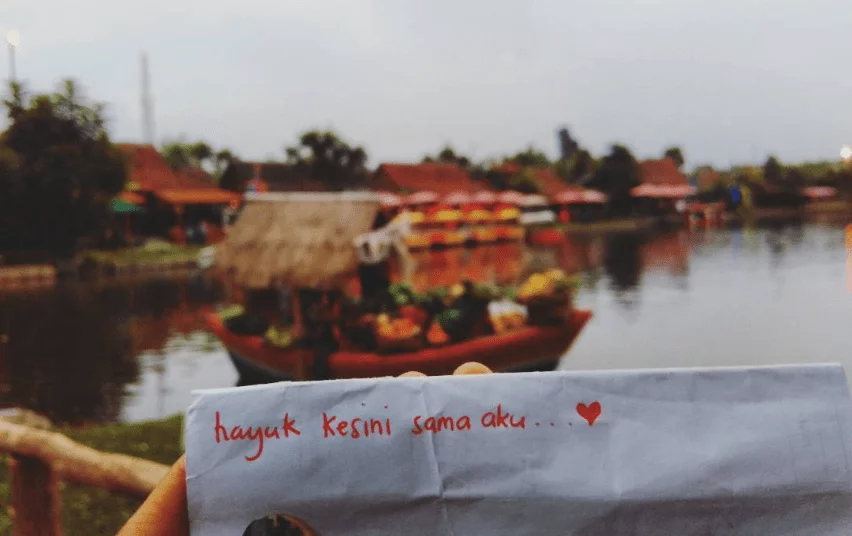 hayuk kesini sama aku...❤